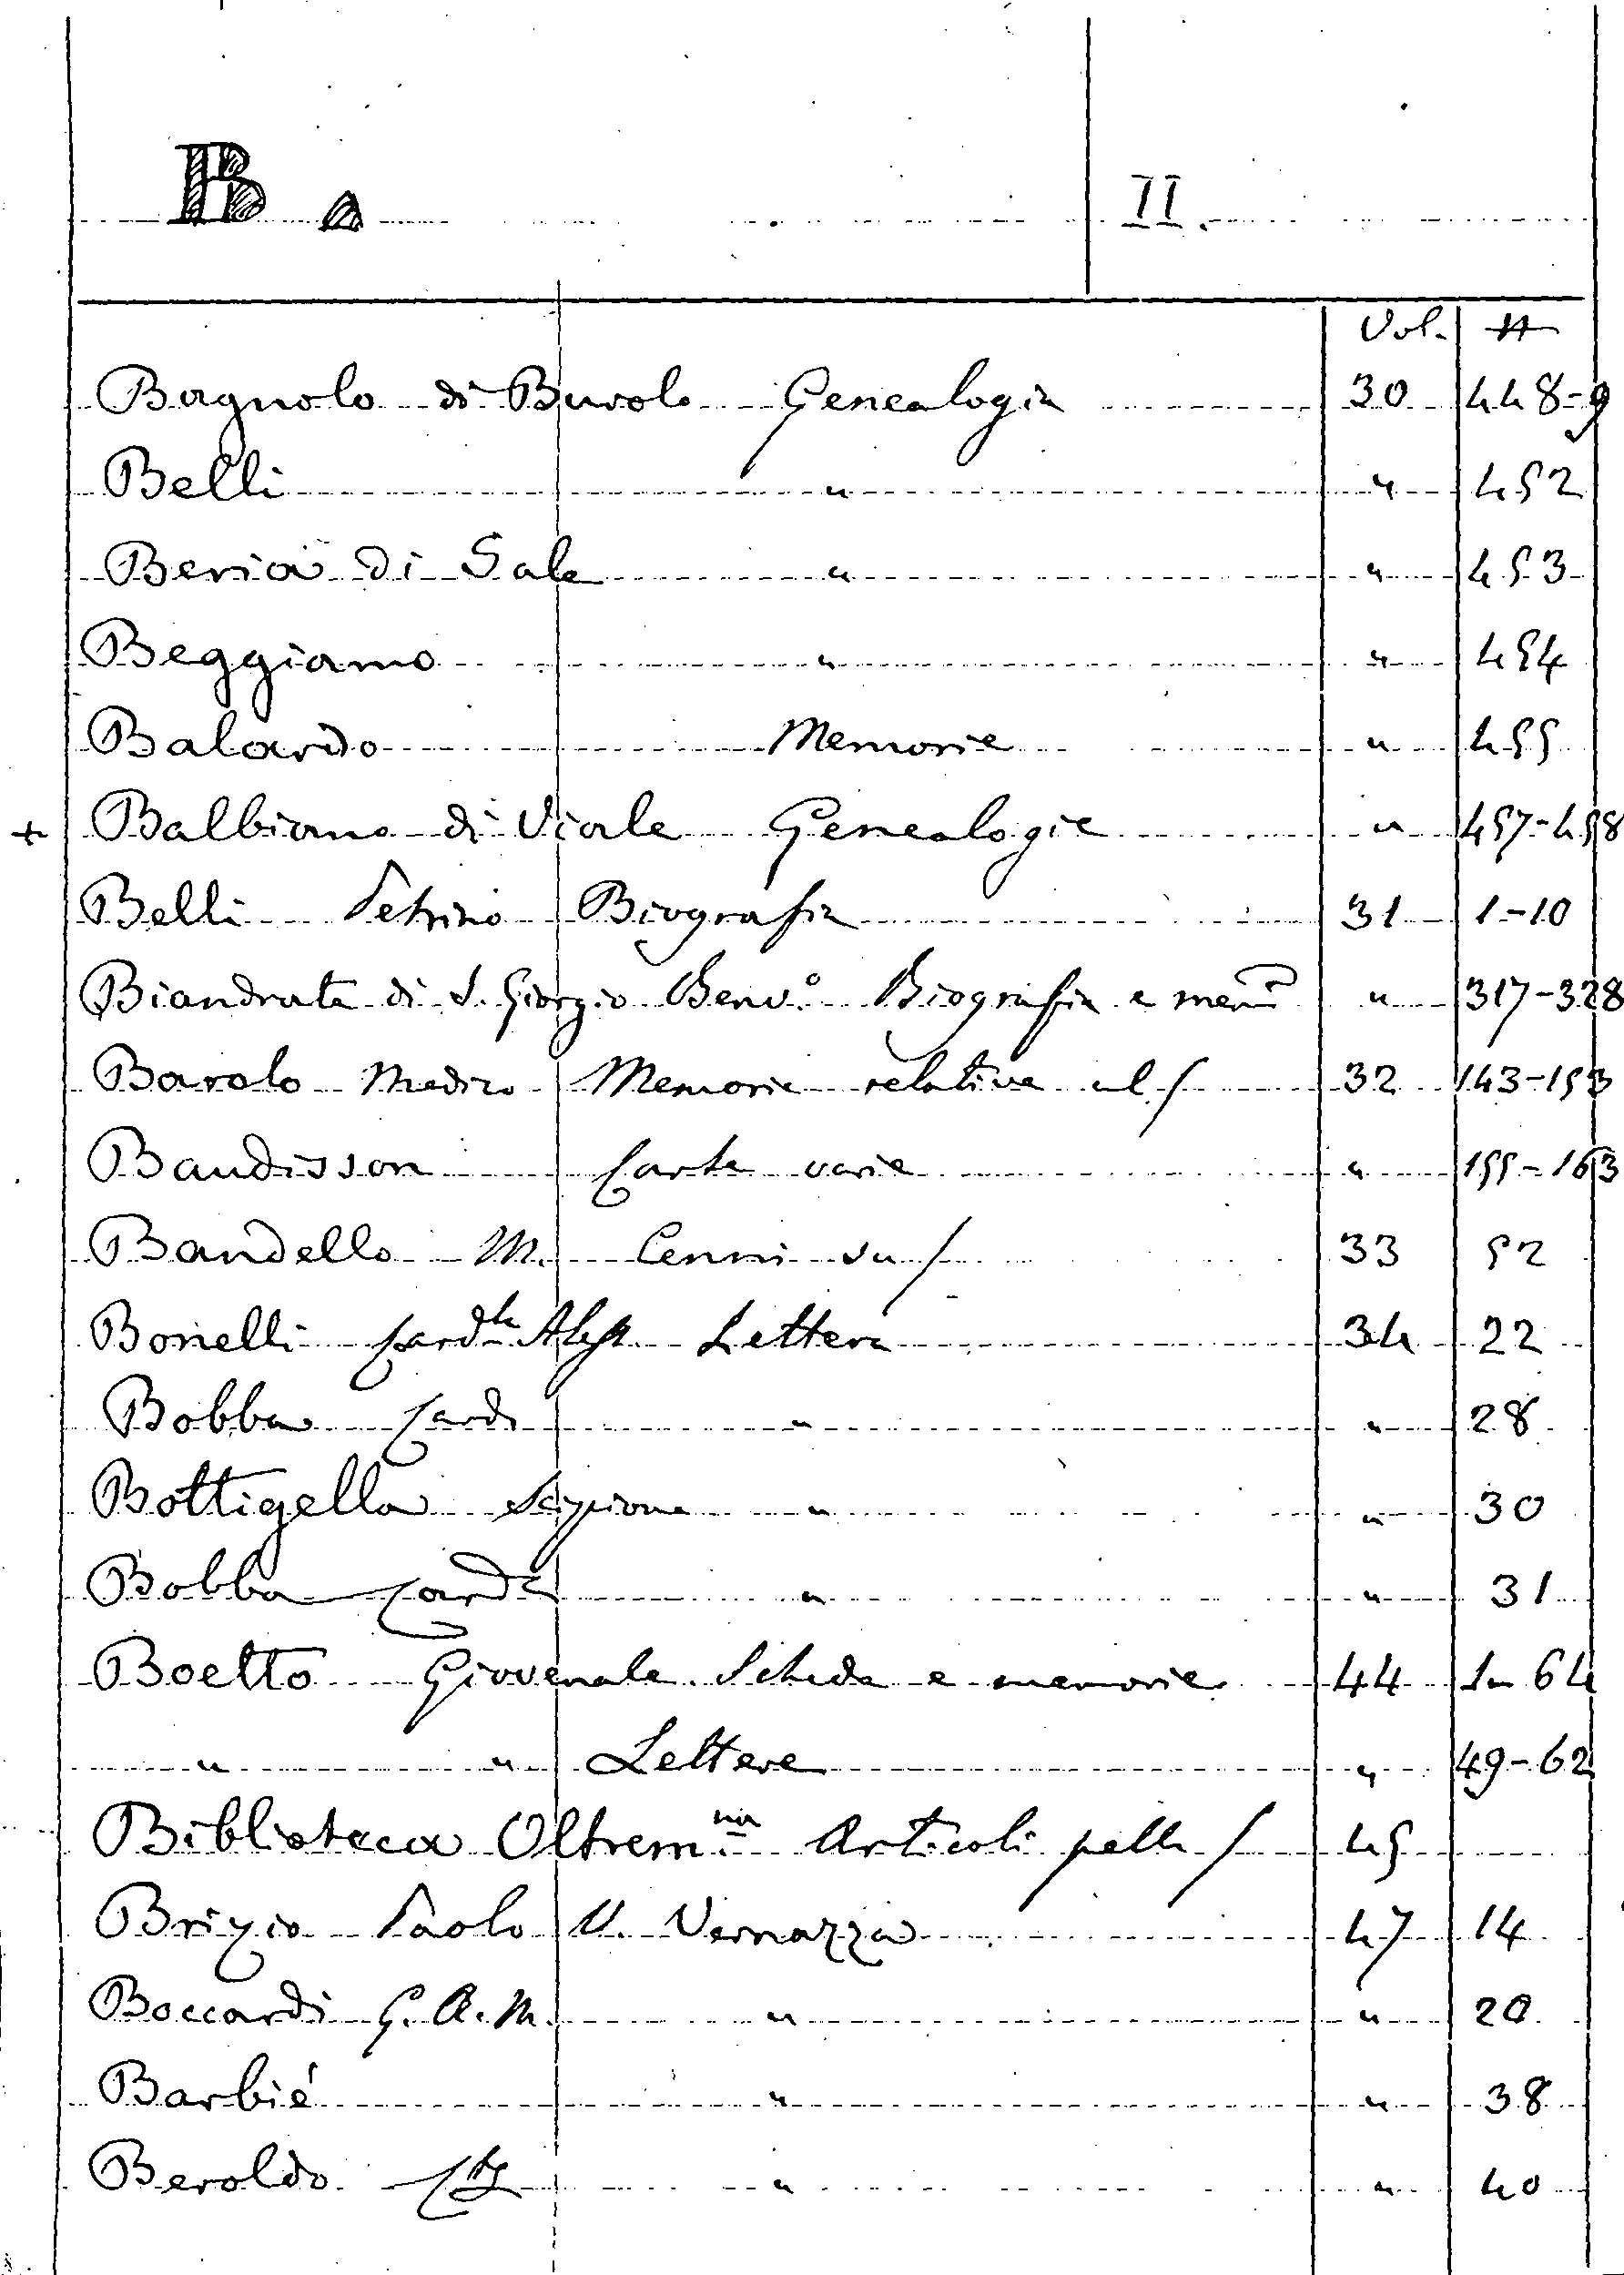 B. II.
Vol. #
Bagnolo di Burolo Genealogia 30 448-9
Belli " " 452
Beria di Sale " " 453
Beggiamo " " 454
Balardo Memorie " 455
+ Balbiano di Viale Genealogie " 457-458
Belli Petrino Biografia 31 1-10
Biandrate di S. Giorgio Benv.o Biografia e mem " 317-328
Barolo Medico Memorie relative al / 32 143-153
Baudisson Carte varie " 155-163
Bandello M. Cenni su / 33 52
Bonelli Cardle Aless. Lettera 34 22
Bobba Card " " 28
Bottigella Scipione " " 30
Bobba Cardle " " 31
Boetto Giovenale Schede e memorie 44 1-64
" " Lettere " 49-62
Biblioteca Oltrem.na Articoli pella / 45
Brizio Paolo V. Vernazza 47 14
Boccardi G. A. M. " " 20
Barbié " " 38
Beroldo " " 40